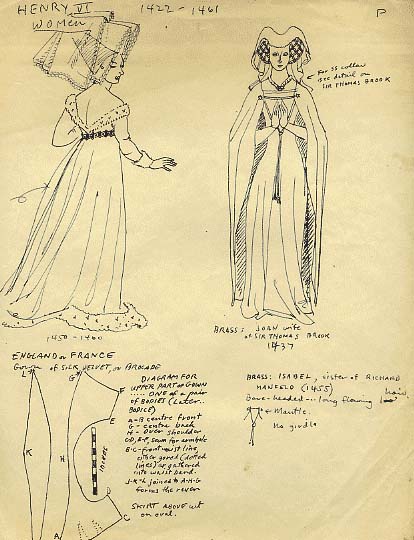 HENRY VI 1422 - 1461 P
WOMEN
For SS collar
see detail on
SIR THOMAS BROOK
1450 - 1460
BRASS: JOAN wife
of SIR THOMAS BROOK
1437
ENGLAND or FRANCE
Gown of SILK VELVET or BROCADE
DIAGRAM FOR
UPPER PART of GOWN
..... ONE of a pair
of BODIES (Later..
BODICE)
A-B centre front
G - centre back
H - Over shoulder
CD, E-F, seam for armhole
B-C - Front waist line
either gored (dotted
lines) or gathered
into waist band.
J-K-L joined to A-H-G
forms the rever
SKIRT ABOVE cut
on oval.
L
G
F
E
K
H
INCHES
D
C
A
BRASS: ISABEL, sister of RICHARD
MANFELD (1455)
Bare-headed -- long flowing hair.
Mantle.
No girdle